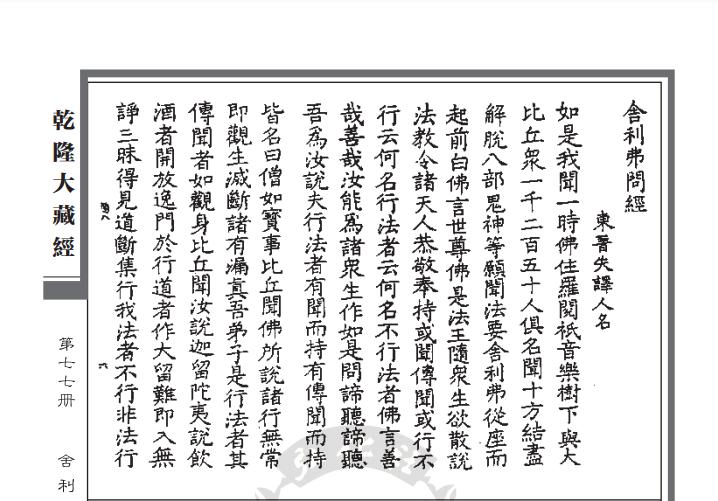 舎利弗問經
東晉失譯人名
如是我聞一時佛住羅閱祇音樂樹下與大
比丘衆一千二百五十人俱名聞十方結盡
解脫八部鬼神等願聞法要舎利弗從座而
起前白佛言世尊佛是法王隨衆生欲散說
法教令諸天人恭敬奉持或聞傳聞或行不
行云何名行法者云何名不行法者佛言善
哉善哉汝能爲諸衆生作如是問諦聽諦聽
吾爲汝說夫行法者有聞而持有傳聞而持
皆名曰僧如寳事比丘聞佛所說諸行無常
即觀生滅斷諸有漏真吾弟子是行法者其
傳聞者如觀身比丘聞汝說迦留陀夷說飲
酒者開放逸門於行道者作大留難即入無
諍三昧得見道斷集行我法者不行非法行
乾隆大藏經
第七七册
舍利